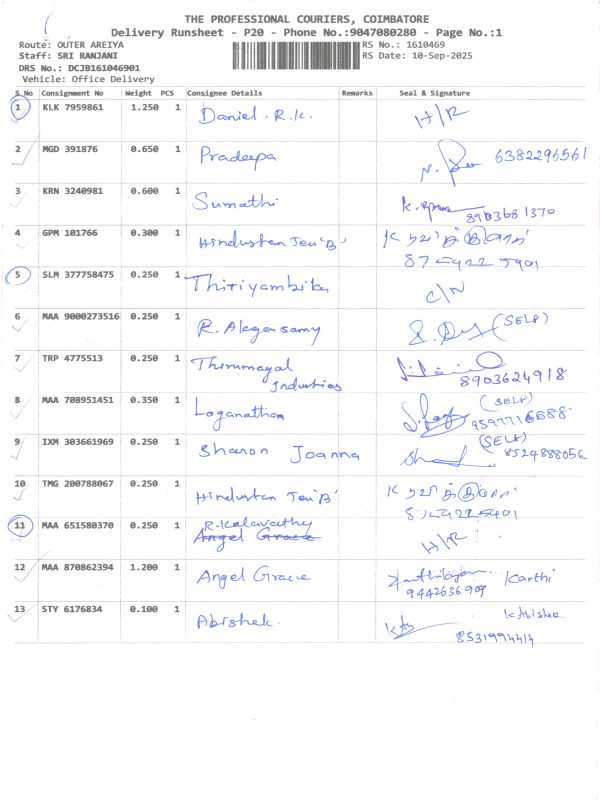 THE PROFESSIONAL COURIERS, COIMBATORE
Delivery Runsheet - P20 - Phone No.:9047080280 - Page No.:1
Route: OUTER AREIYA RS No.: 1610469
Staff: SRI RANJANI RS Date: 10-Sep-2025
DRS No.: DCJB161046901
Vehicle: Office Delivery
S.No Consignment No Weight PCS Consignee Details Remarks Seal & Signature
1 KLK 7959861 1.250 1 Daniel . R.K. H/R
2 MGD 391876 0.650 1 Pradeepa 6382296561
3 KRN 3240981 0.600 1 Sumathi
8903681370
4 GPM 101766 0.300 1 Hindustan
5 SLM 377758475 0.250 1 Thiriyambika C/N
6 MAA 9000273516 0.250 1 R. Alagarsamy (SELF)
7 TRP 4775513 0.250 1 Thirumagal
Industries 8903624918
8 MAA 708951451 0.350 1 Loganathan (SELF)
9 IXM 303661969 0.250 1 Sharon Joanna (SELF) 8524888056
10 TMG 200788067 0.250 1 Hindustan
11 MAA 651580370 0.250 1 R.Kalavathy H/R
Angel Grace
12 MAA 870862394 1.200 1 Angel Grace Karthi
9442636909
13 STY 6176834 0.100 1 Abishek. K Abishek
8531994414